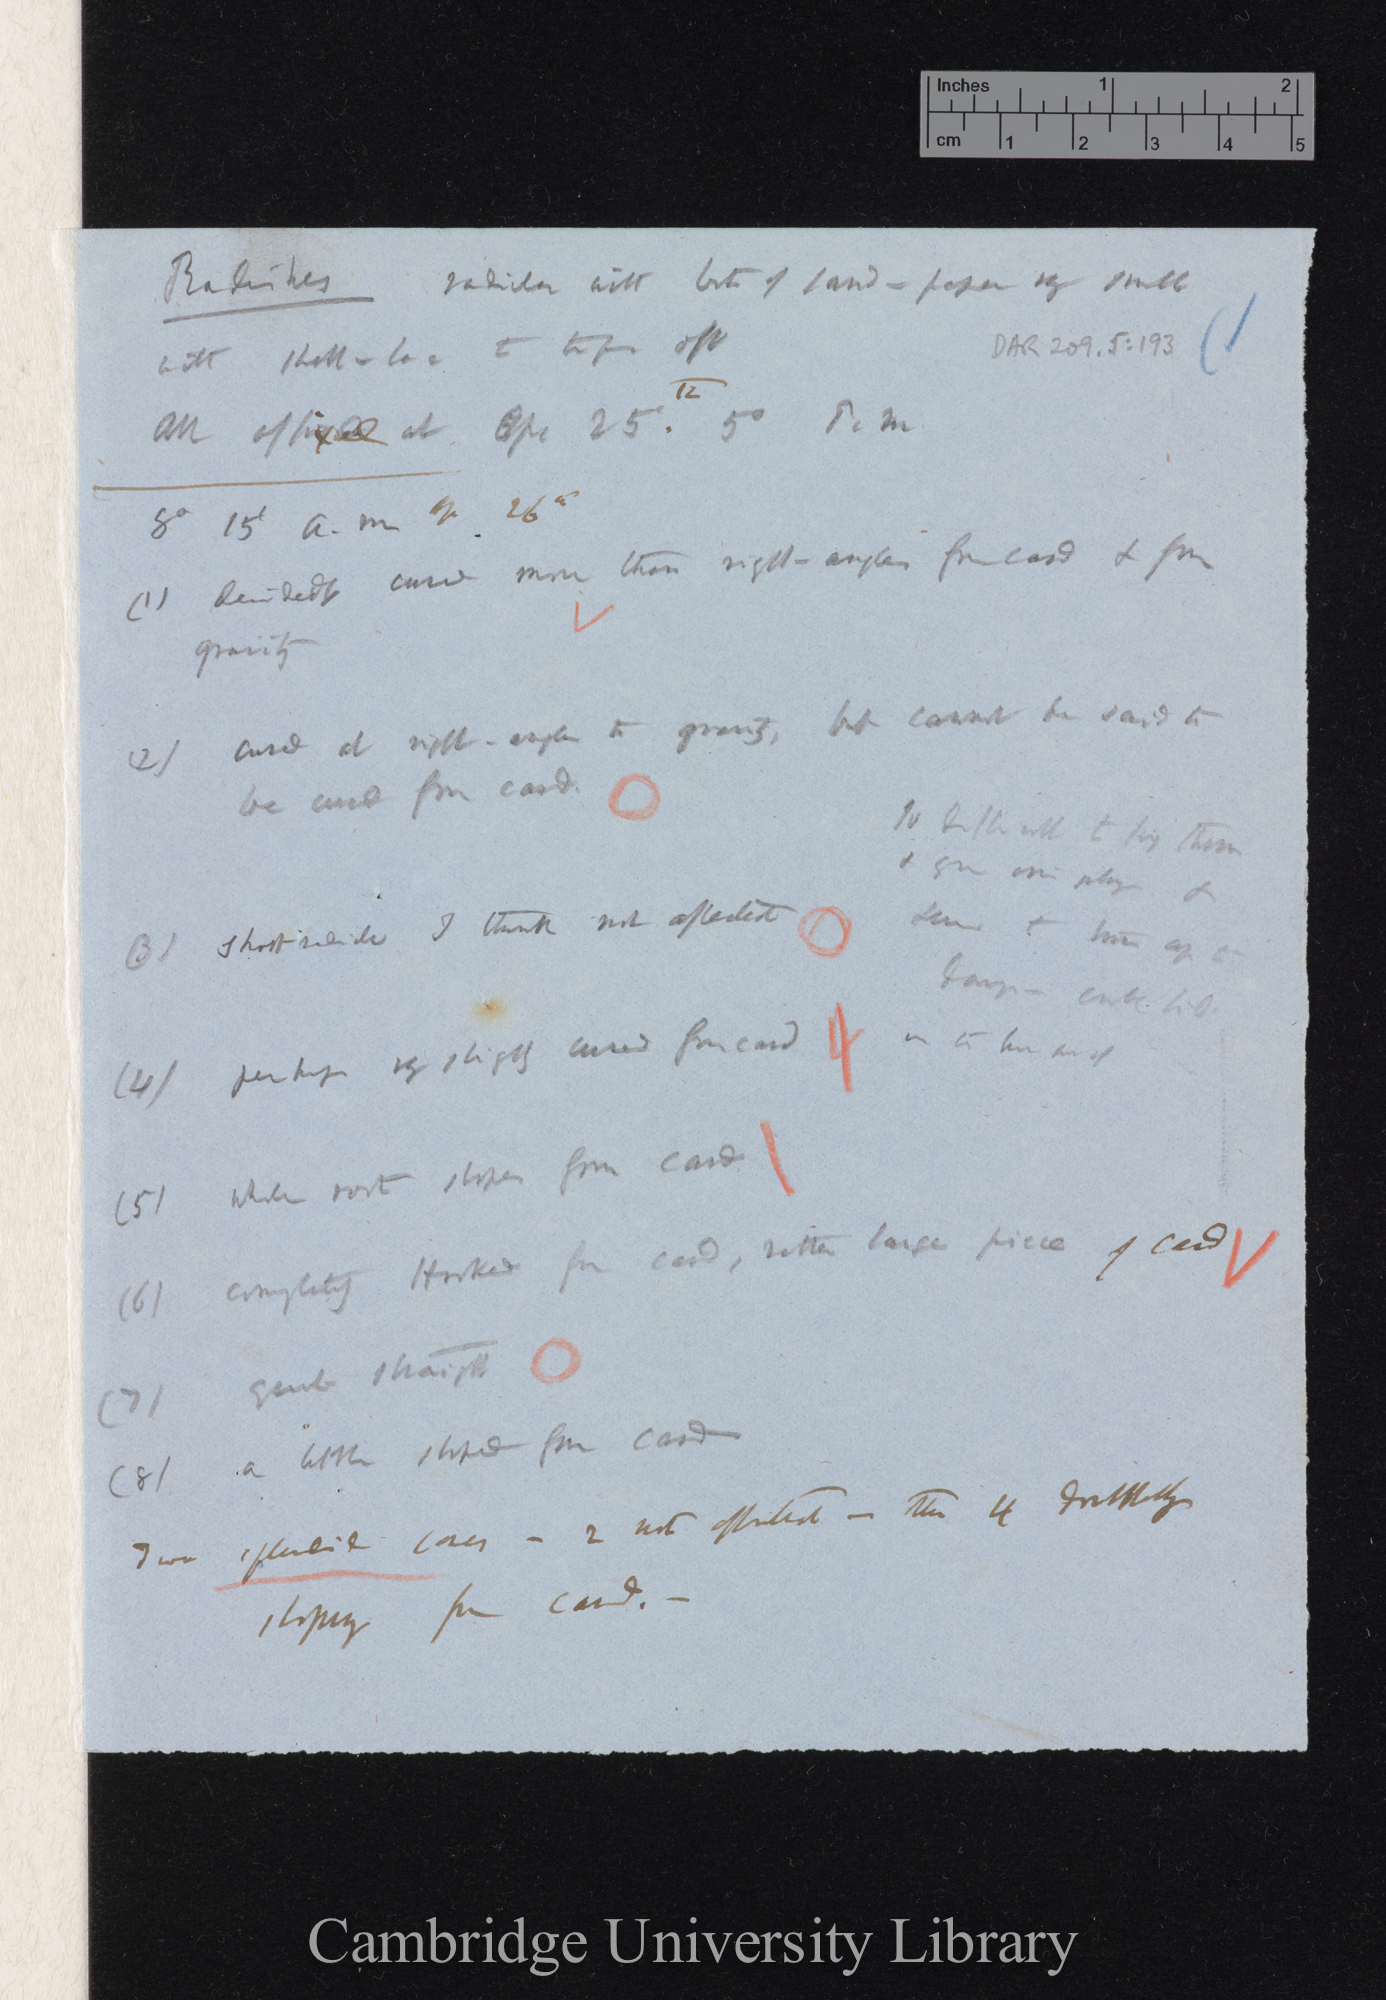 Inches 1 2
cm 1 2 3 4 5
Radishes radicles with bits of sand-paper vy small
with shell-lac to tips
DAR 209.5:193
All affixed at Ap 25. 5° P.m
12
8° 15' a.m Ap 26th
(1) decidedly curved more than right-angles from card & from
gravity
(2) curved at right-angles to gravity, but cannot be said to
be curved from card.
(3) short radicle I think not affected
(4) perhaps vy slightly curved from card
It difficult to fix them
(5) whole root slopes from card
(6) completely Hooked from card, rather large piece of card
(7) quite straight
(8) a little sloped from card
Two splendid cases - 2 not affected - the 4 doubtfully
sloping from card. -
Cambridge University Library